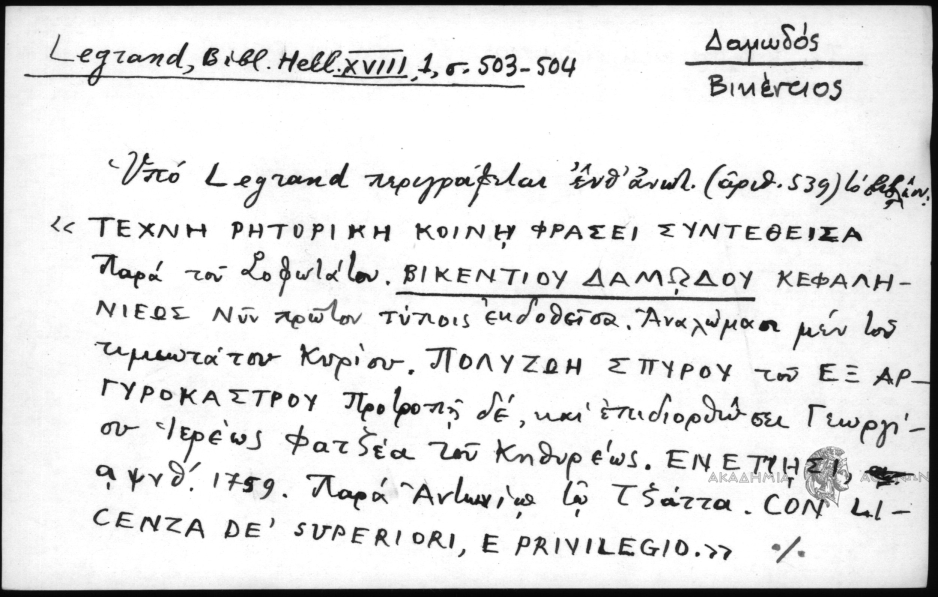 Legrand, Bibl. Hell. XVIII, 1, σ. 503-504
Δαμωδός
Βικέντιος
Ὑπό Legrand περιγράφεται ἐνθ' ἀνωτ. (ἀριθ. 539) τό βιβλίον:
« ΤΕΧΝΗ ΡΗΤΟΡΙΚΗ ΚΟΙΝῌ ΦΡΑΣΕΙ ΣΥΝΤΕΘΕΙΣΑ
Παρά τοῦ Σοφωτάτου. ΒΙΚΕΝΤΙΟΥ ΔΑΜΩΔΟΥ ΚΕΦΑΛΗ-
ΝΙΕΩΣ Νῦν πρῶτον τύποις ἐκδοθεῖσα. Ἀναλώμασι μέν τοῦ
τιμιωτάτου Κυρίου. ΠΟΛΥΖΩΗ ΣΠΥΡΟΥ τοῦ ΕΞ ΑΡ-
ΓΥΡΟΚΑΣΤΡΟΥ Προτροπῇ δέ, καί ἐπιδιορθώσει Γεωργί-
ου Ἱερέως Φατζέα τοῦ Κηθυρέως. ΕΝΕΤΙῌΣΙ,
ᾳψνθ΄. 1759. Παρά Ἀντωνίῳ τῷ Τζάττα. CON LI-
CENZA DE' SUPERIORI, E PRIVILEGIO.» ./.
ΑΚΑΔΗΜΙΑ ΑΘΗΝΩΝ